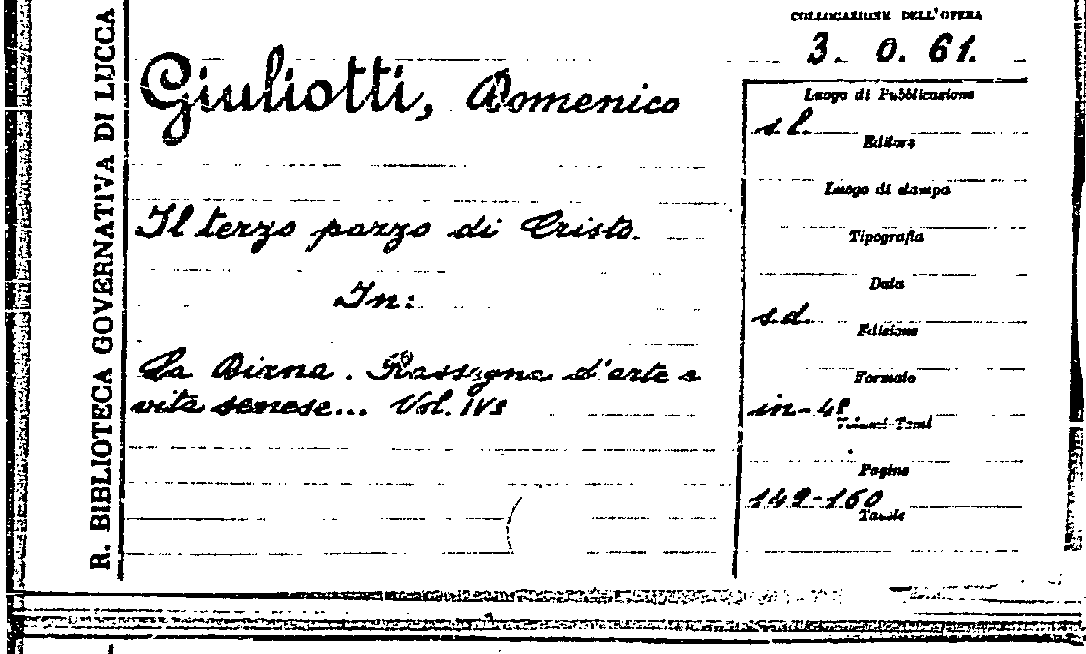 R. BIBLIOTECA GOVERNATIVA DI LUCCA
COLLOCAZIONE DELL'OPERA
3. O. 61.
Giuliotti, Domenico
Il terzo pazzo di Cristo.
In:
La Diana. Rassegna d'arte e
vita senese... Vol. IV°
Luogo di Pubblicazione
s. l.
Editore
Luogo di stampa
Tipografia
Data
s.d.
Edizione
Formato
in-4°
Volumi-Tomi
Pagine
149-160
Tavole